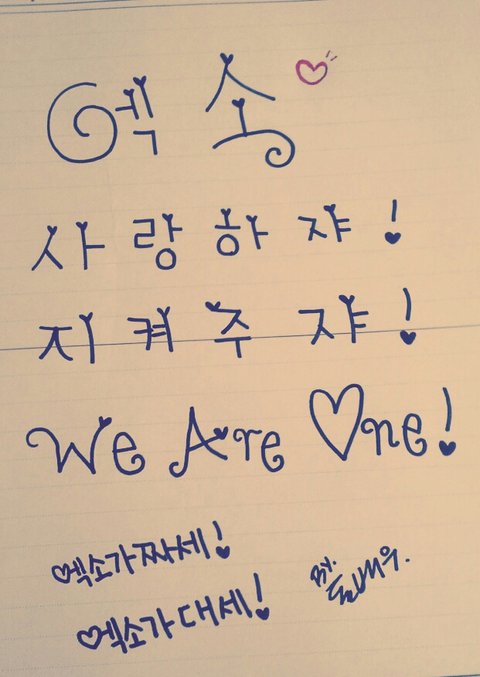 엑소
사랑하쟈!
지켜주쟈!
We Are One!
엑소가 짜세!
엑소가 대세!
By.